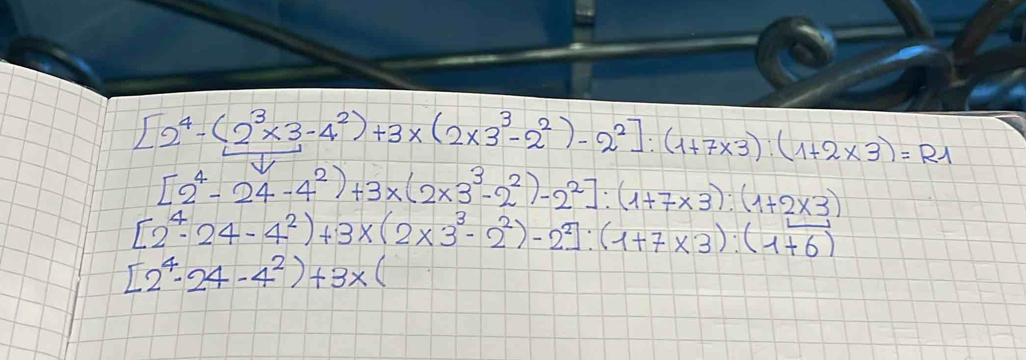 [2⁴-(2³×3-4²)+3×(2×3³-2²)-2²]:(1+7×3):(1+2×3)=R1
[2⁴-24-4²)+3×(2×3³-2²)-2²]:(1+7×3):(1+2×3)
[2⁴-24-4²)+3×(2×3³-2²)-2²]:(1+7×3):(1+6)
[2⁴-24-4²)+3×(